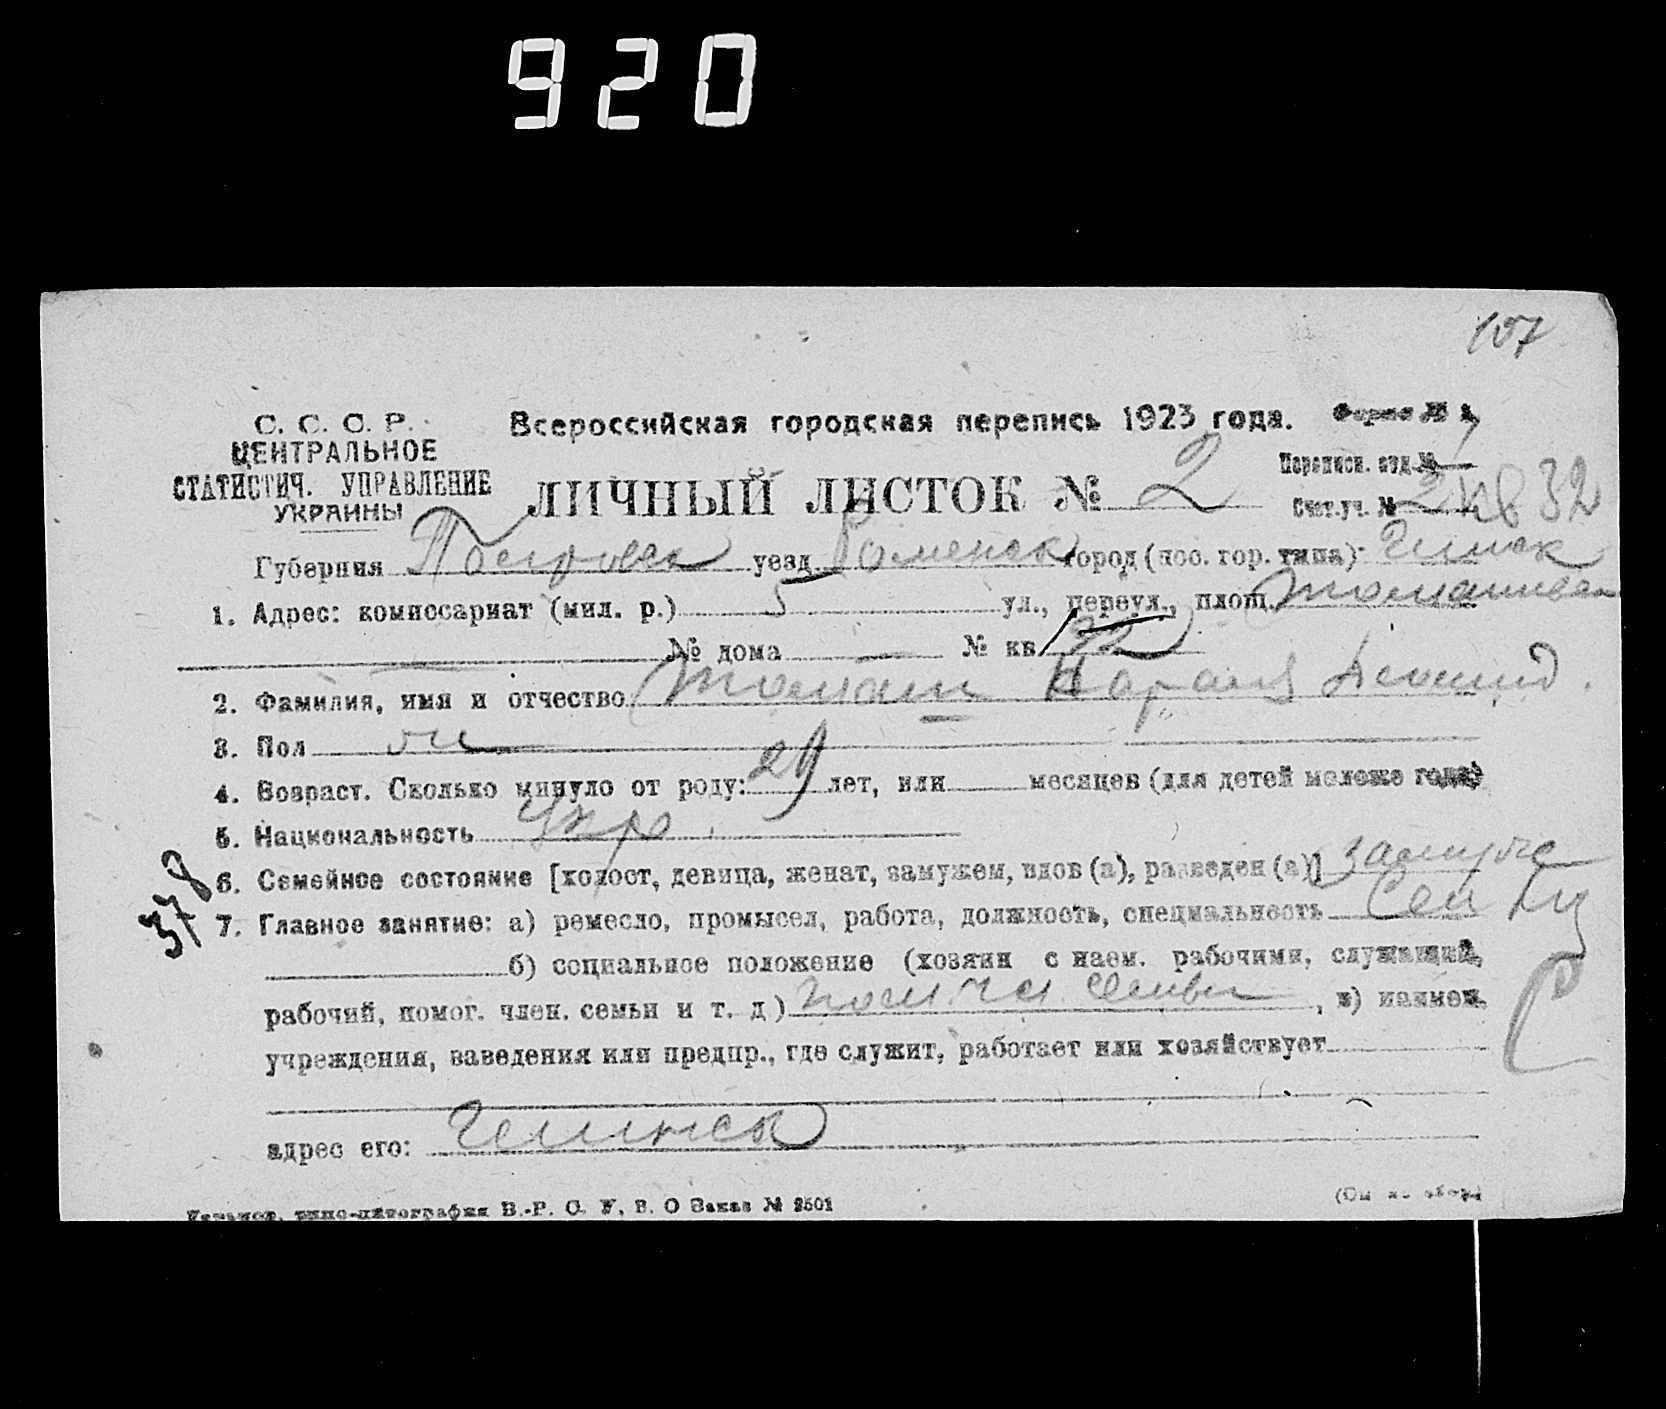 920
107
С. С. С. Р. Всероссийская городская перепись 1923 года. Форма № 1
ЦЕНТРАЛЬНОЕ
СТАТИСТИЧ. УПРАВЛЕНИЕ
УКРАИНЫ
ЛИЧНЫЙ ЛИСТОК № 2
Переписн. отд. №
Счет. уч. № 2
832
Губерния уезд Роменск город (пос. гор. типа)
1. Адрес: комиссариат (мил. р.) 5 ул., переул., площ.
№ дома — № кв.
2. Фамилия, имя и отчество
3. Пол
4. Возраст. Сколько минуло от роду: 29 лет, или месяцев (для детей моложе года)
5. Национальность Укр
6. Семейное состояние [холост, девица, женат, замужем, вдов (а), разведен (а)] замуже
378
7. Главное занятие: а) ремесло, промысел, работа, должность, специальность
б) социальное положение (хозяин с наем. рабочими, служащий,
рабочий, помог. член. семьи и т. д.) пом чл семьи, в) наимен.
учреждения, заведения или предпр., где служит, работает или хозяйствует
адрес его:
типо-литография В.-Р. С. У. В. О Заказ № 2501
(См. на обор.)